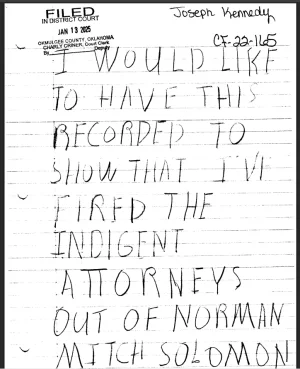 FILED
IN DISTRICT COURT
JAN 13 2025
OKMULGEE COUNTY, OKLAHOMA
CHARLY CRINER, Court Clerk
By Deputy
Joseph Kennedy
CF-22-165
I WOULD LIKE
TO HAVE THIS
RECORDED TO
SHOW THAT I'VE
FIRED THE
INDIGENT
ATTORNEYS
OUT OF NORMAN
MITCH SOLOMON